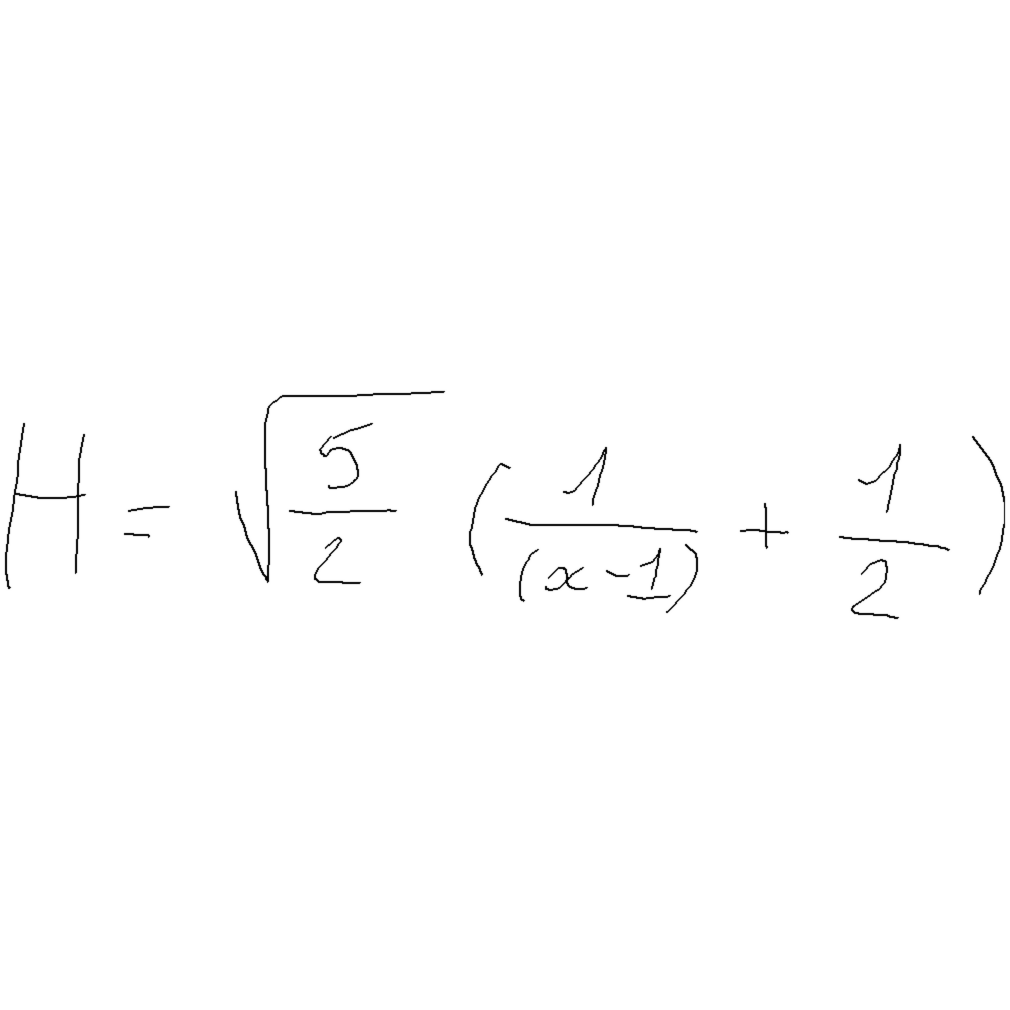 H = √(5/2) (1/(x-1) + 1/2)